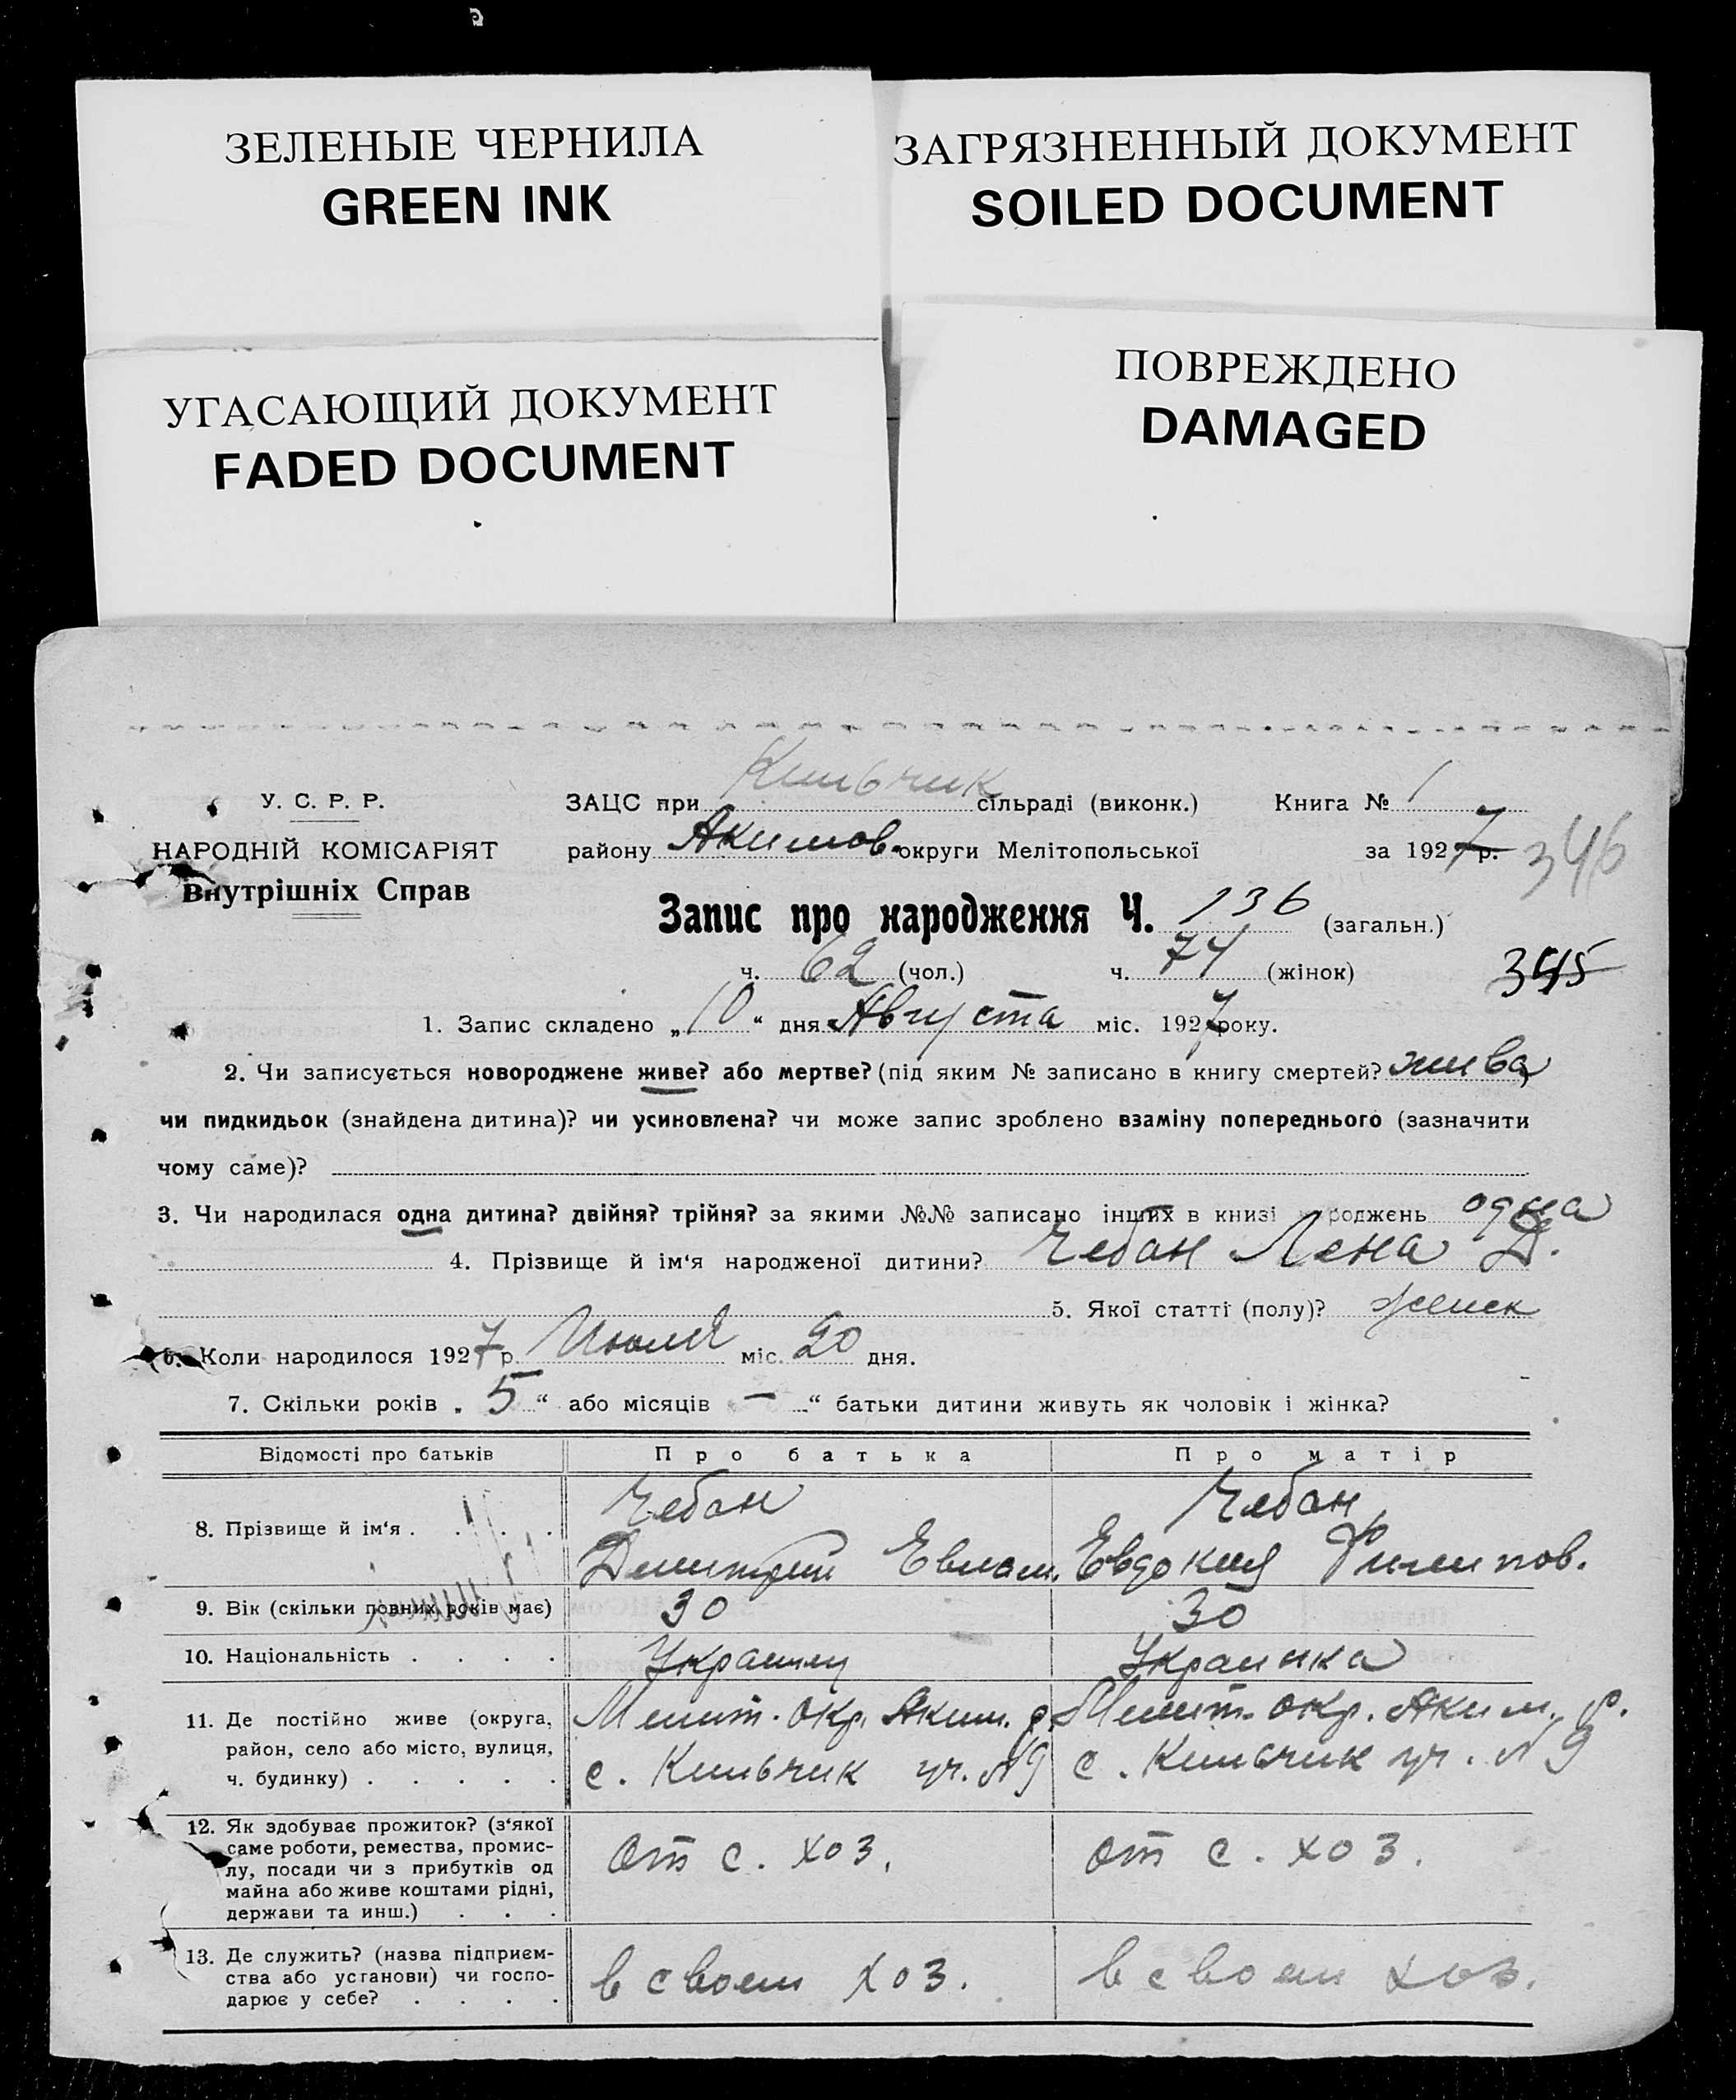 ЗЕЛЕНЫЕ ЧЕРНИЛА
GREEN INK
ЗАГРЯЗНЕННЫЙ ДОКУМЕНТ
SOILED DOCUMENT
УГАСАЮЩИЙ ДОКУМЕНТ
FADED DOCUMENT
ПОВРЕЖДЕНО
DAMAGED
У. С. Р. Р.
НАРОДНІЙ КОМІСАРІЯТ
Внутрішніх Справ
ЗАЦС при Кильчик сільраді (виконк.) Книга № 1
району Акимов. округи Мелітопольської за 1927 р. 346
Запис про народження Ч. 136 (загальн.)
ч. 62 (чол.) ч. 74 (жінок) 345
1. Запис складено „10“ дня Августа міс. 1927 року.
2. Чи записується новороджене живе? або мертве? (під яким № записано в книгу смертей? жива
чи пидкидьок (знайдена дитина)? чи усиновлена? чи може запис зроблено взаміну попереднього (зазначити
чому саме)?
3. Чи народилася одна дитина? двійня? трійня? за якими №№ записано інших в книзі роджень одна
4. Прізвище й ім‘я народженої дитини? Чебан Лена Д.
5. Якої статті (полу)? женск
6. Коли народилося 1927 р. Июля міс. 20 дня.
7. Скільки років „5“ або місяців — “ батьки дитини живуть як чоловік і жінка?
Відомості про батьків Про батька Про матір
8. Прізвище й ім‘я . . . . Чебан Чебан
Димитрий Евлам. Евдокия Филипов.
9. Вік (скільки повних років має) 30 30
10. Національність . . . . Украинец Украинка
11. Де постійно живе (округа, Мелит. окр. Аким. р. Мелит. окр. Аким. р.
район, село або місто, вулиця,
ч. будинку) . . . . . с. Кильчик уч. №9 с. Кильчик уч. №9
12. Як здобуває прожиток? (з‘якої
саме роботи, ремества, промис-
лу, посади чи з прибутків од от с. хоз. от с. хоз.
майна або живе коштами рідні,
держави та инш.) . . .
13. Де служить? (назва підприєм-
ства або установи) чи госпо- в своем хоз. в своем хоз.
дарює у себе? . . . .